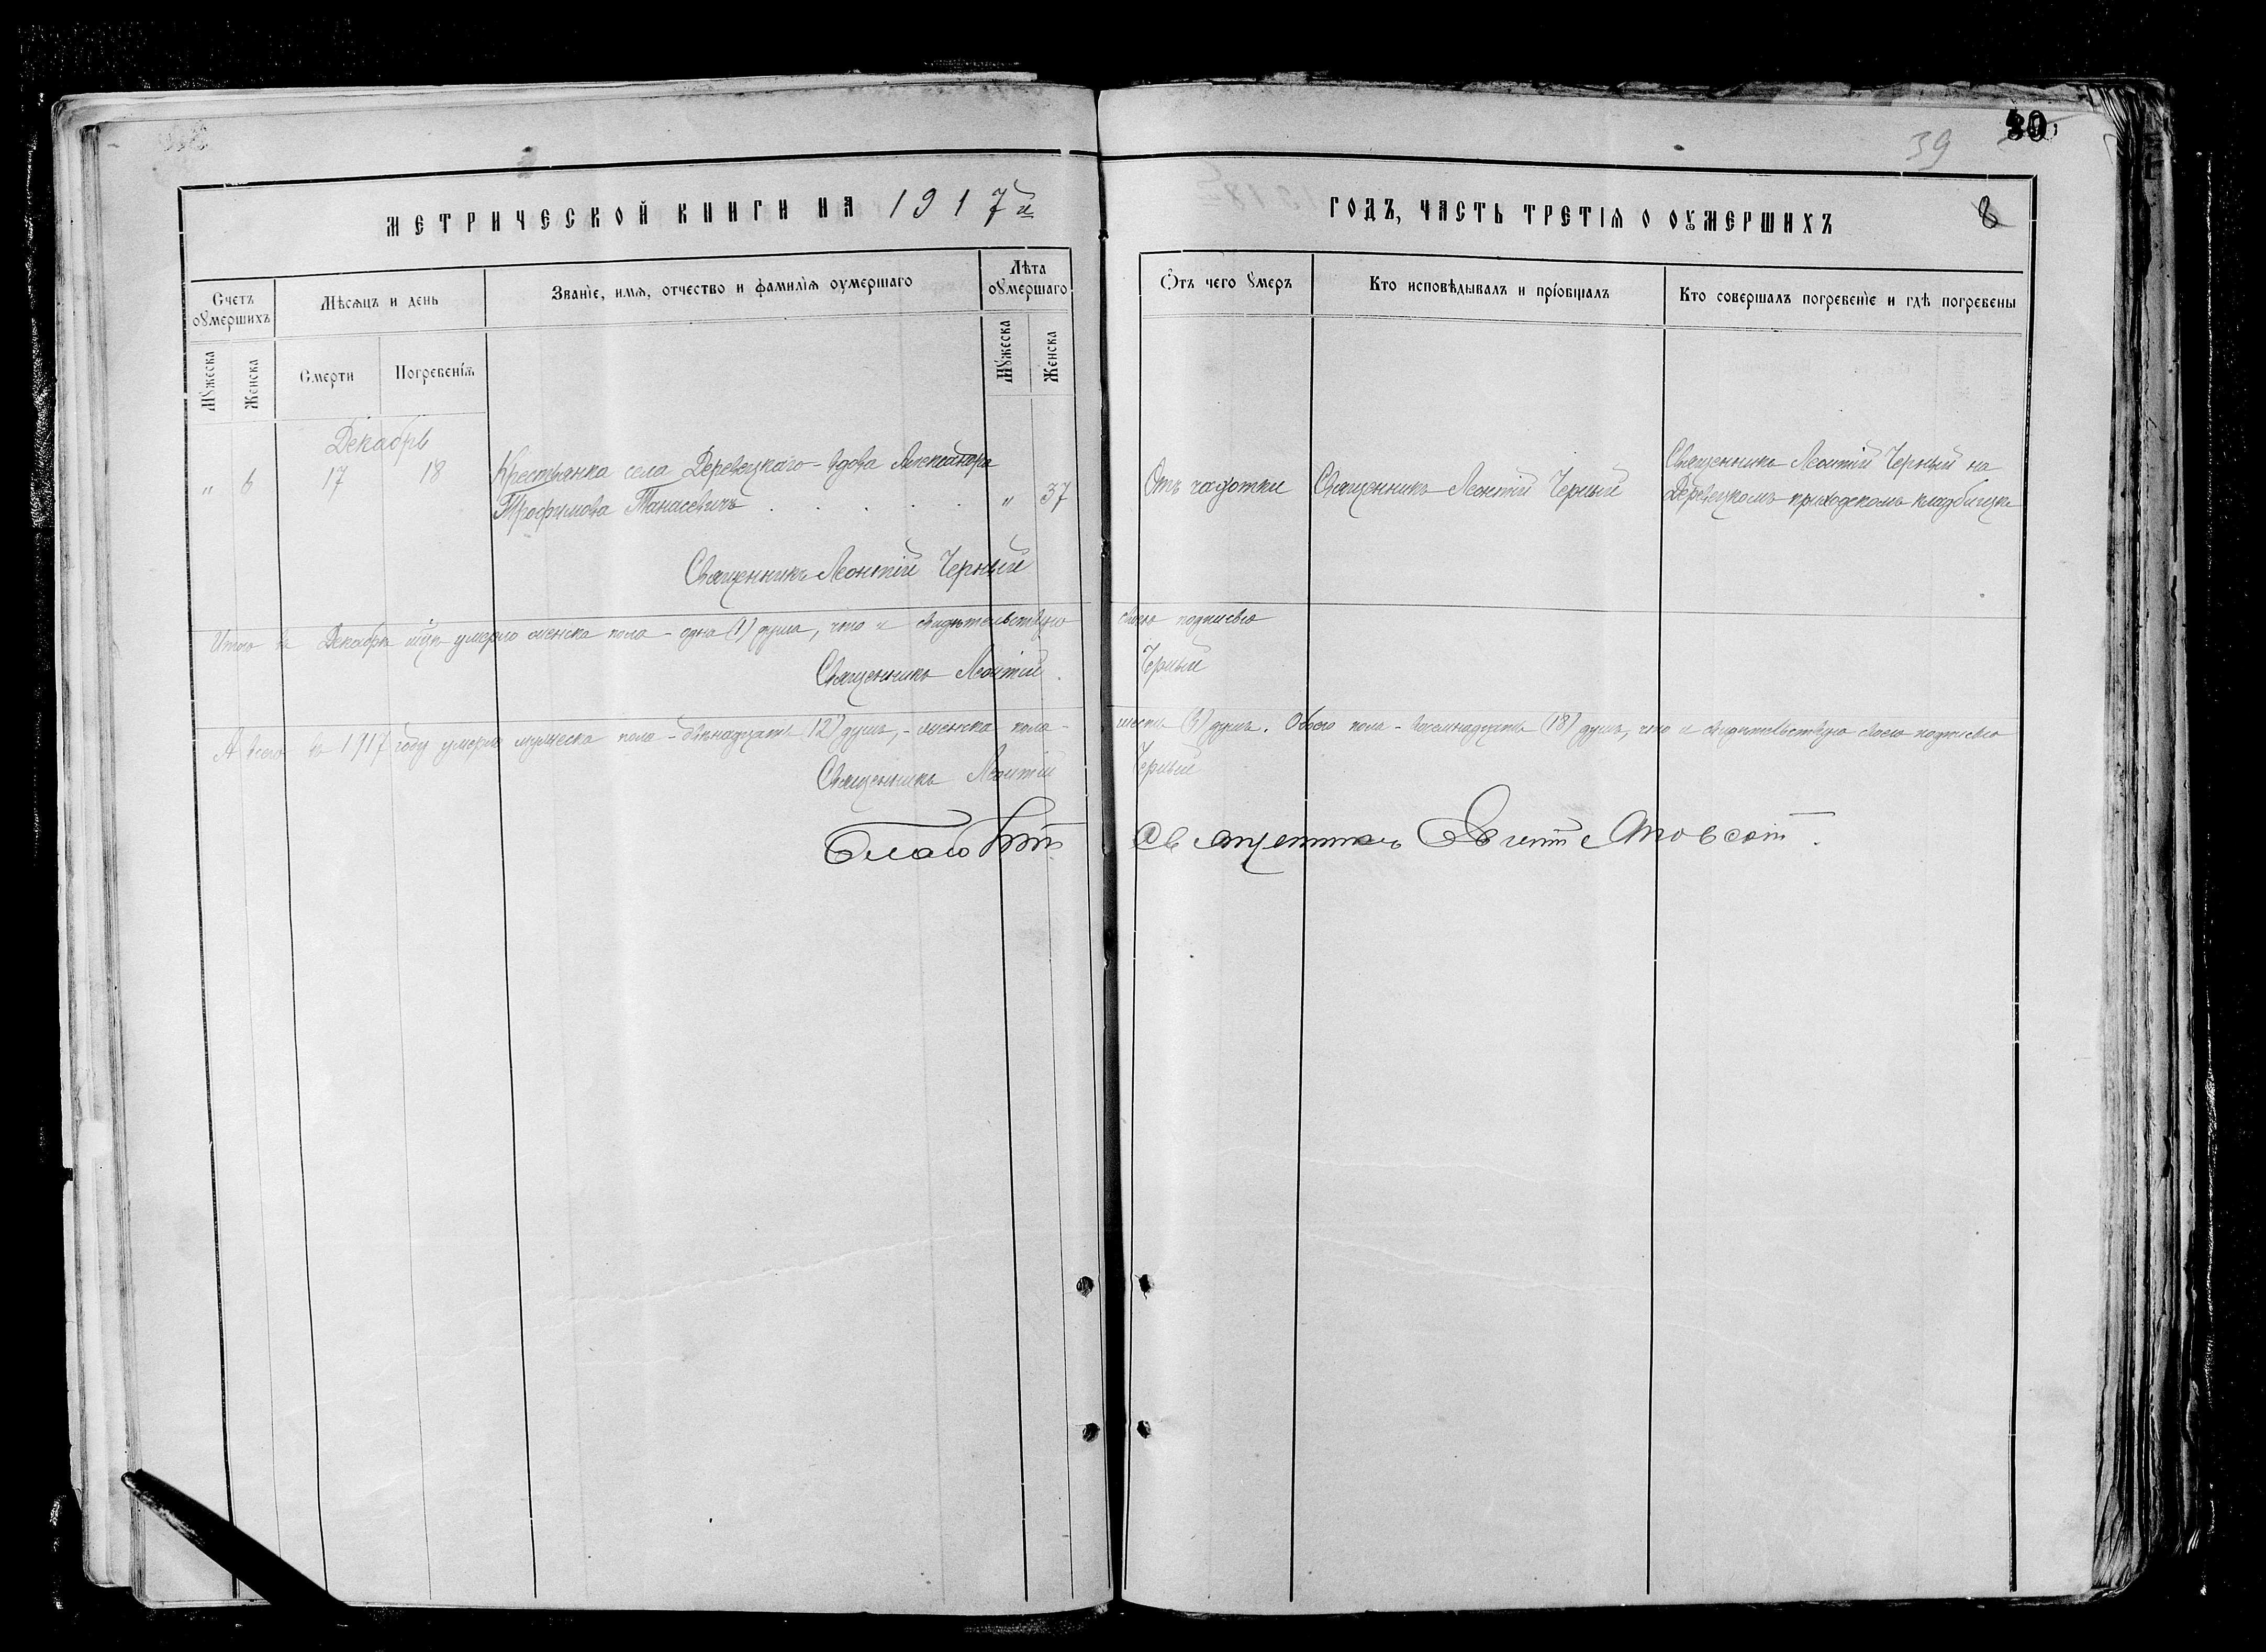 39
МЕТРИЧЕСКОЙ КНИГИ НА 1917й
ГОДЪ, ЧАСТЬ ТРЕТІЯ О ОУМЕРШИХЪ
8
Счетъ оумершихъ
Мужеска
Женска
Мѣсяцъ и день
Смерти
Погребенія
Званіе, имя, отчество и фамилія оумершаго
Лѣта оумершаго
Мужеска
Женска
Отъ чего умеръ
Кто исповѣдывалъ и пріобщалъ
Кто совершалъ погребеніе и гдѣ погребены
Декабрь
„ 6 17 18 Крестьянка села Деревецкаго - вдова Александра
Трофимова Танасевичъ . . . . . „ 37
Отъ чахотки
Священникъ Леонтій Черный
Священникъ Леонтій Черный на
Деревецкомъ приходскомъ кладбищѣ
Священникъ Леонтій Черный
Итого въ Декабрѣ м-цѣ умерло женска пола - одна (1) душа, что и свидѣтельствую своею подписью
Священникъ Леонтій Черный
А всего въ 1917 году умерло мужеска пола - двѣнадцать (12) душъ, - женска пола - шесть (6) душъ. Обоего пола - восемнадцать (18) душъ, что и свидѣтельствую своею подписью
Священникъ Леонтій Черный
Священникъ